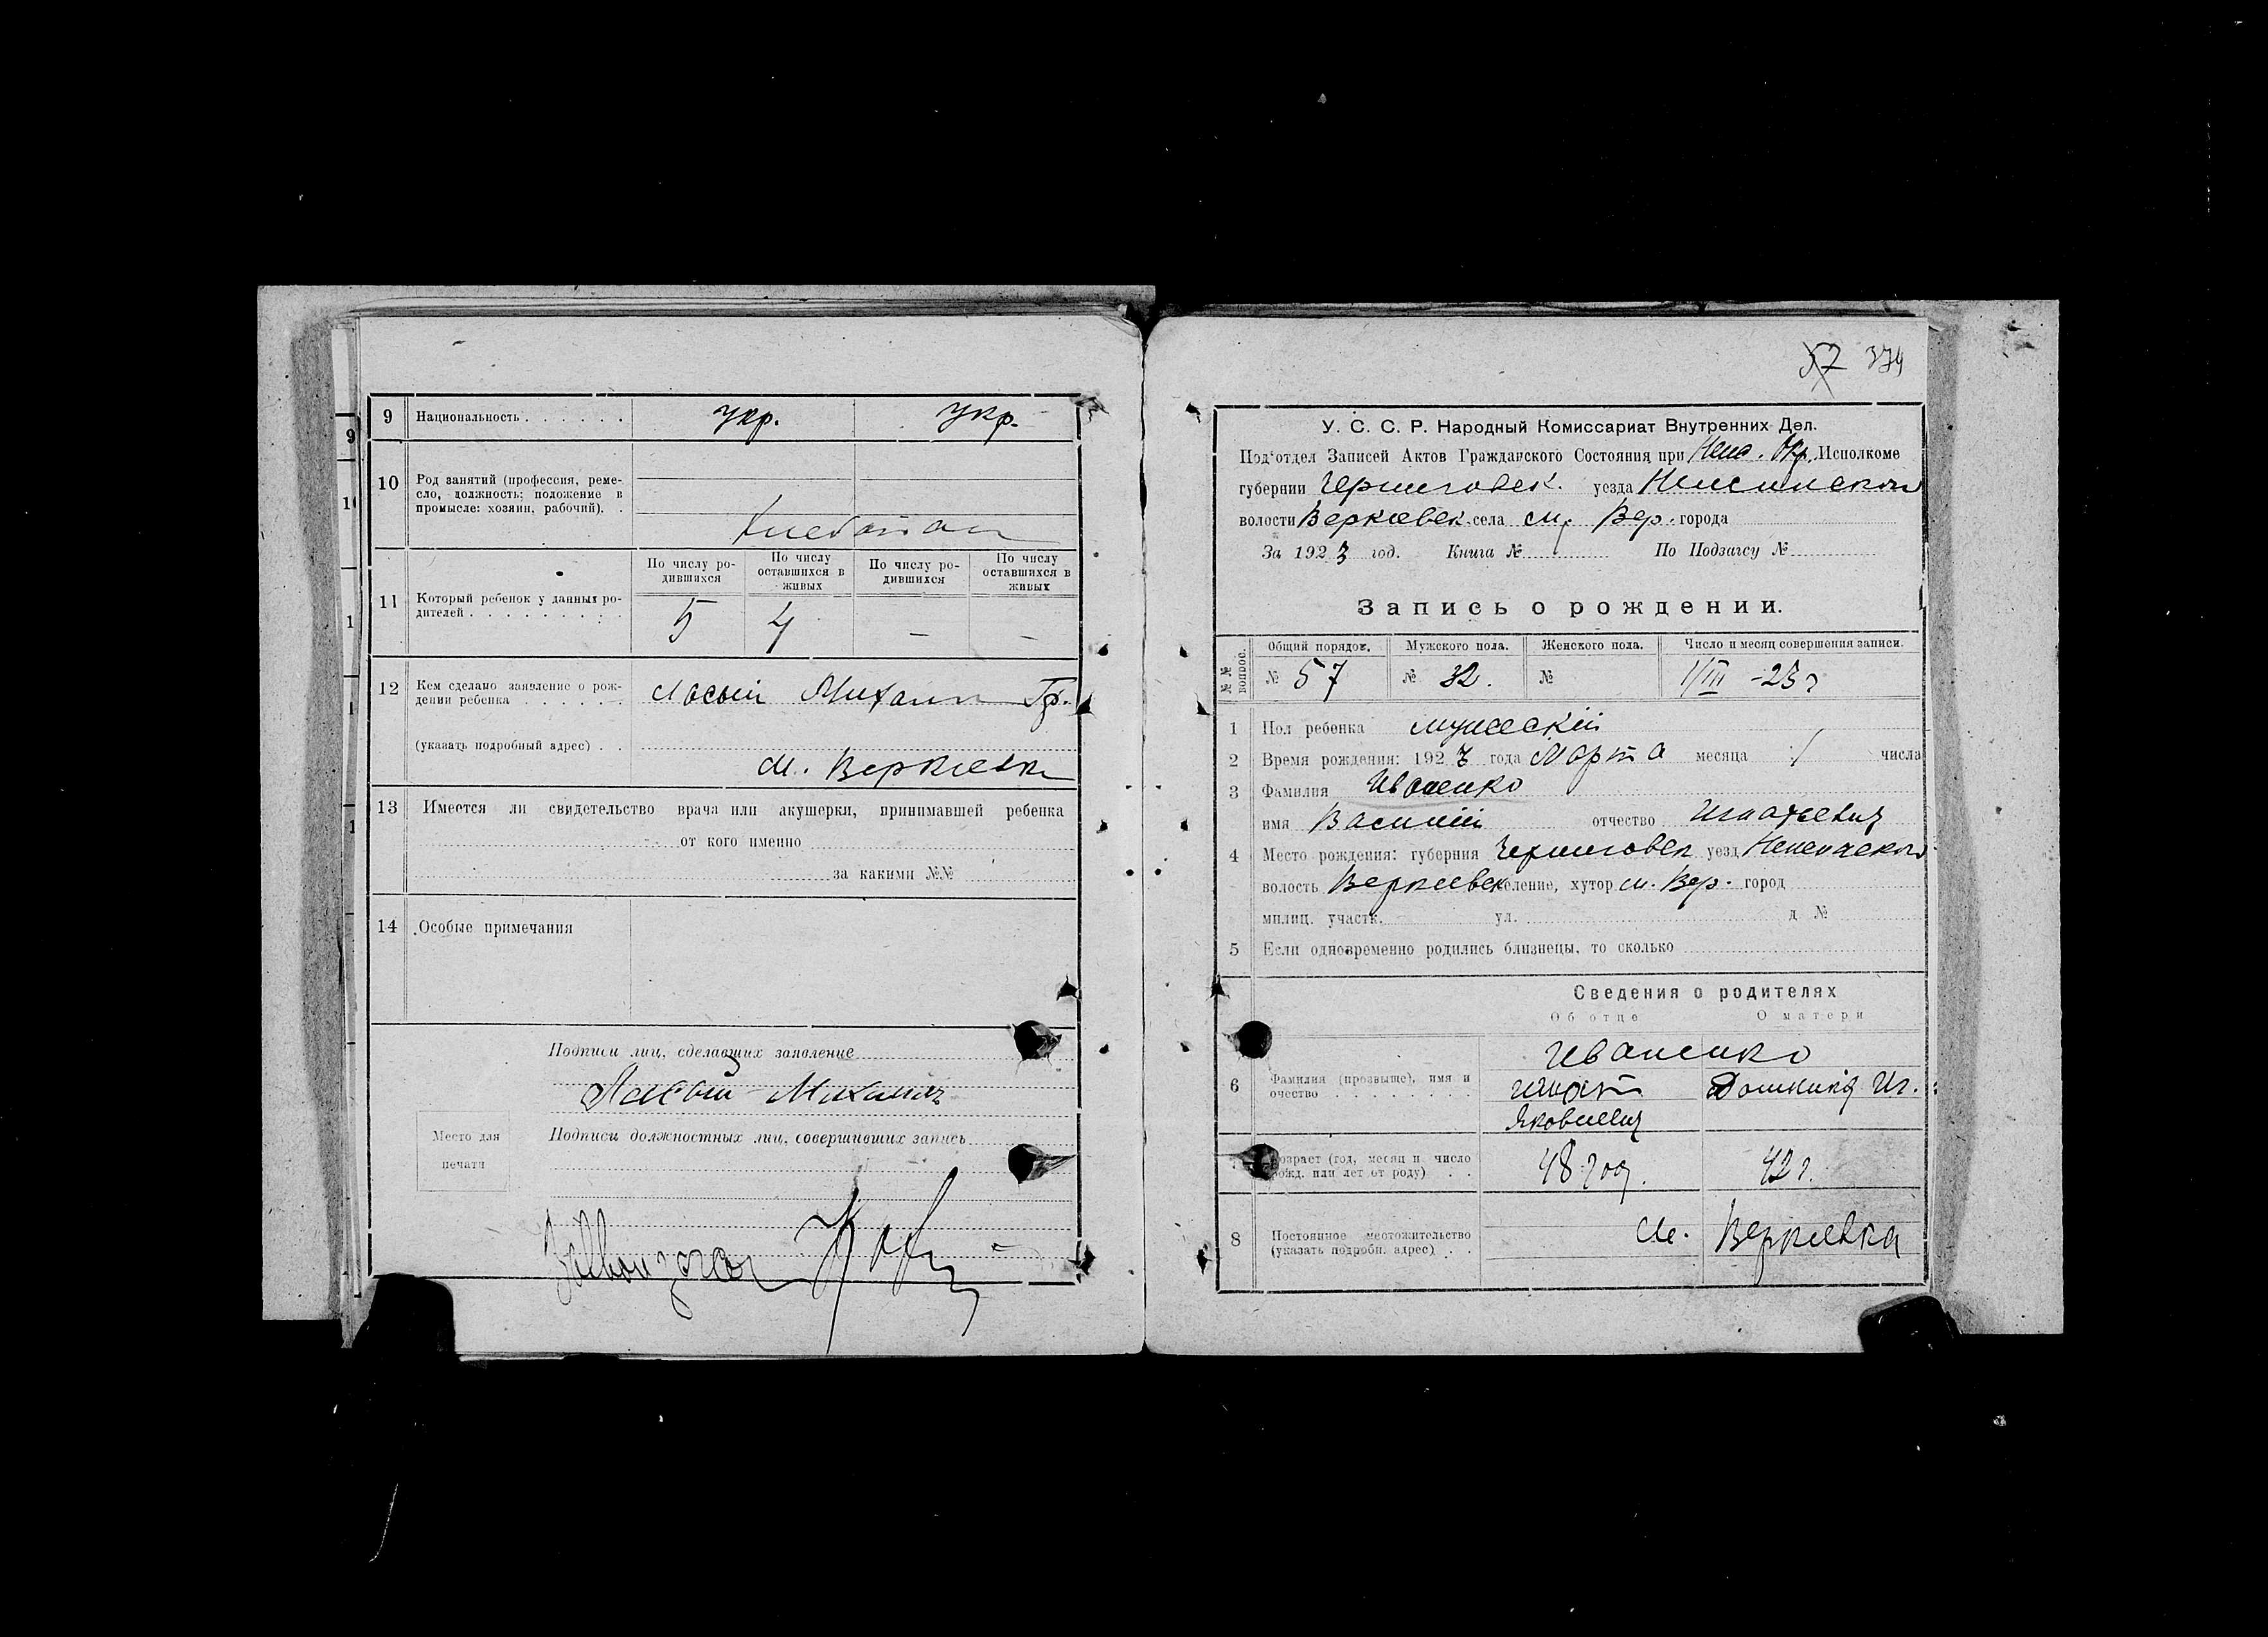 9 Национальность . . . . . . укр. укр.
10 Род занятий (профессия, реме-
сло, должность; положение в
промысле: хозяин, рабочий). .
По числу ро-
дившихся
По числу
оставшихся в
живых
По числу ро-
дившихся
По числу
оставшихся в
живых
11 Который ребенок у данных ро-
дителей . . . . . . . . . . 5 4 — —
12 Кем сделано заявление о рож-
дении ребенка . . . . . . Лосый Михаил Гр.
(указать подробный адрес) . .
м. Веркиевка
13 Имеется ли свидетельство врача или акушерки, принимавшей ребенка
от кого именно
за какими №№
14 Особые примечания
Подписи лиц, сделавших заявление
Михаил
Место для
печати
Подписи должностных лиц, совершивших запись
57 374
У. С. С. Р. Народный Комиссариат Внутренних Дел.
Под‘отдел Записей Актов Гражданского Состояния при Неж. Окр. Исполкоме
губернии Черниговск. уезда Нежинского
волости Веркиевск. села м. Вер. города
За 1923 год. Книга № По Подзагсу №
Запись о рождении.
№ № вопрос.
Общий порядок. Мужского пола. Женского пола. Число и месяц совершения записи.
№ 57 № 32. № 1/III -23 г
1 Пол ребенка мужескій
2 Время рождения: 1923 года Марта месяца 1 числа
3 Фамилия Иваненко
имя Василій отчество Игнатьевич
4 Место рождения: губерния Черниговск уезд Неженского
волость Веркиевск селение, хутор м. Вер. город
милиц. участк. ул. д №
5 Если одновременно родились близнецы, то сколько
Сведения о родителях
Об отце О матери
Иваненко
6 Фамилия (прозвыще), имя и
очество . . . . . . . . Игнат Домникия Иг.
Яковлевич
Возраст (год, месяц и число
рожд. или лет от роду) . . 48 год. 42 г.
8 Постоянное местожительство
(указать подробн. адрес) . . м. Веркиевка